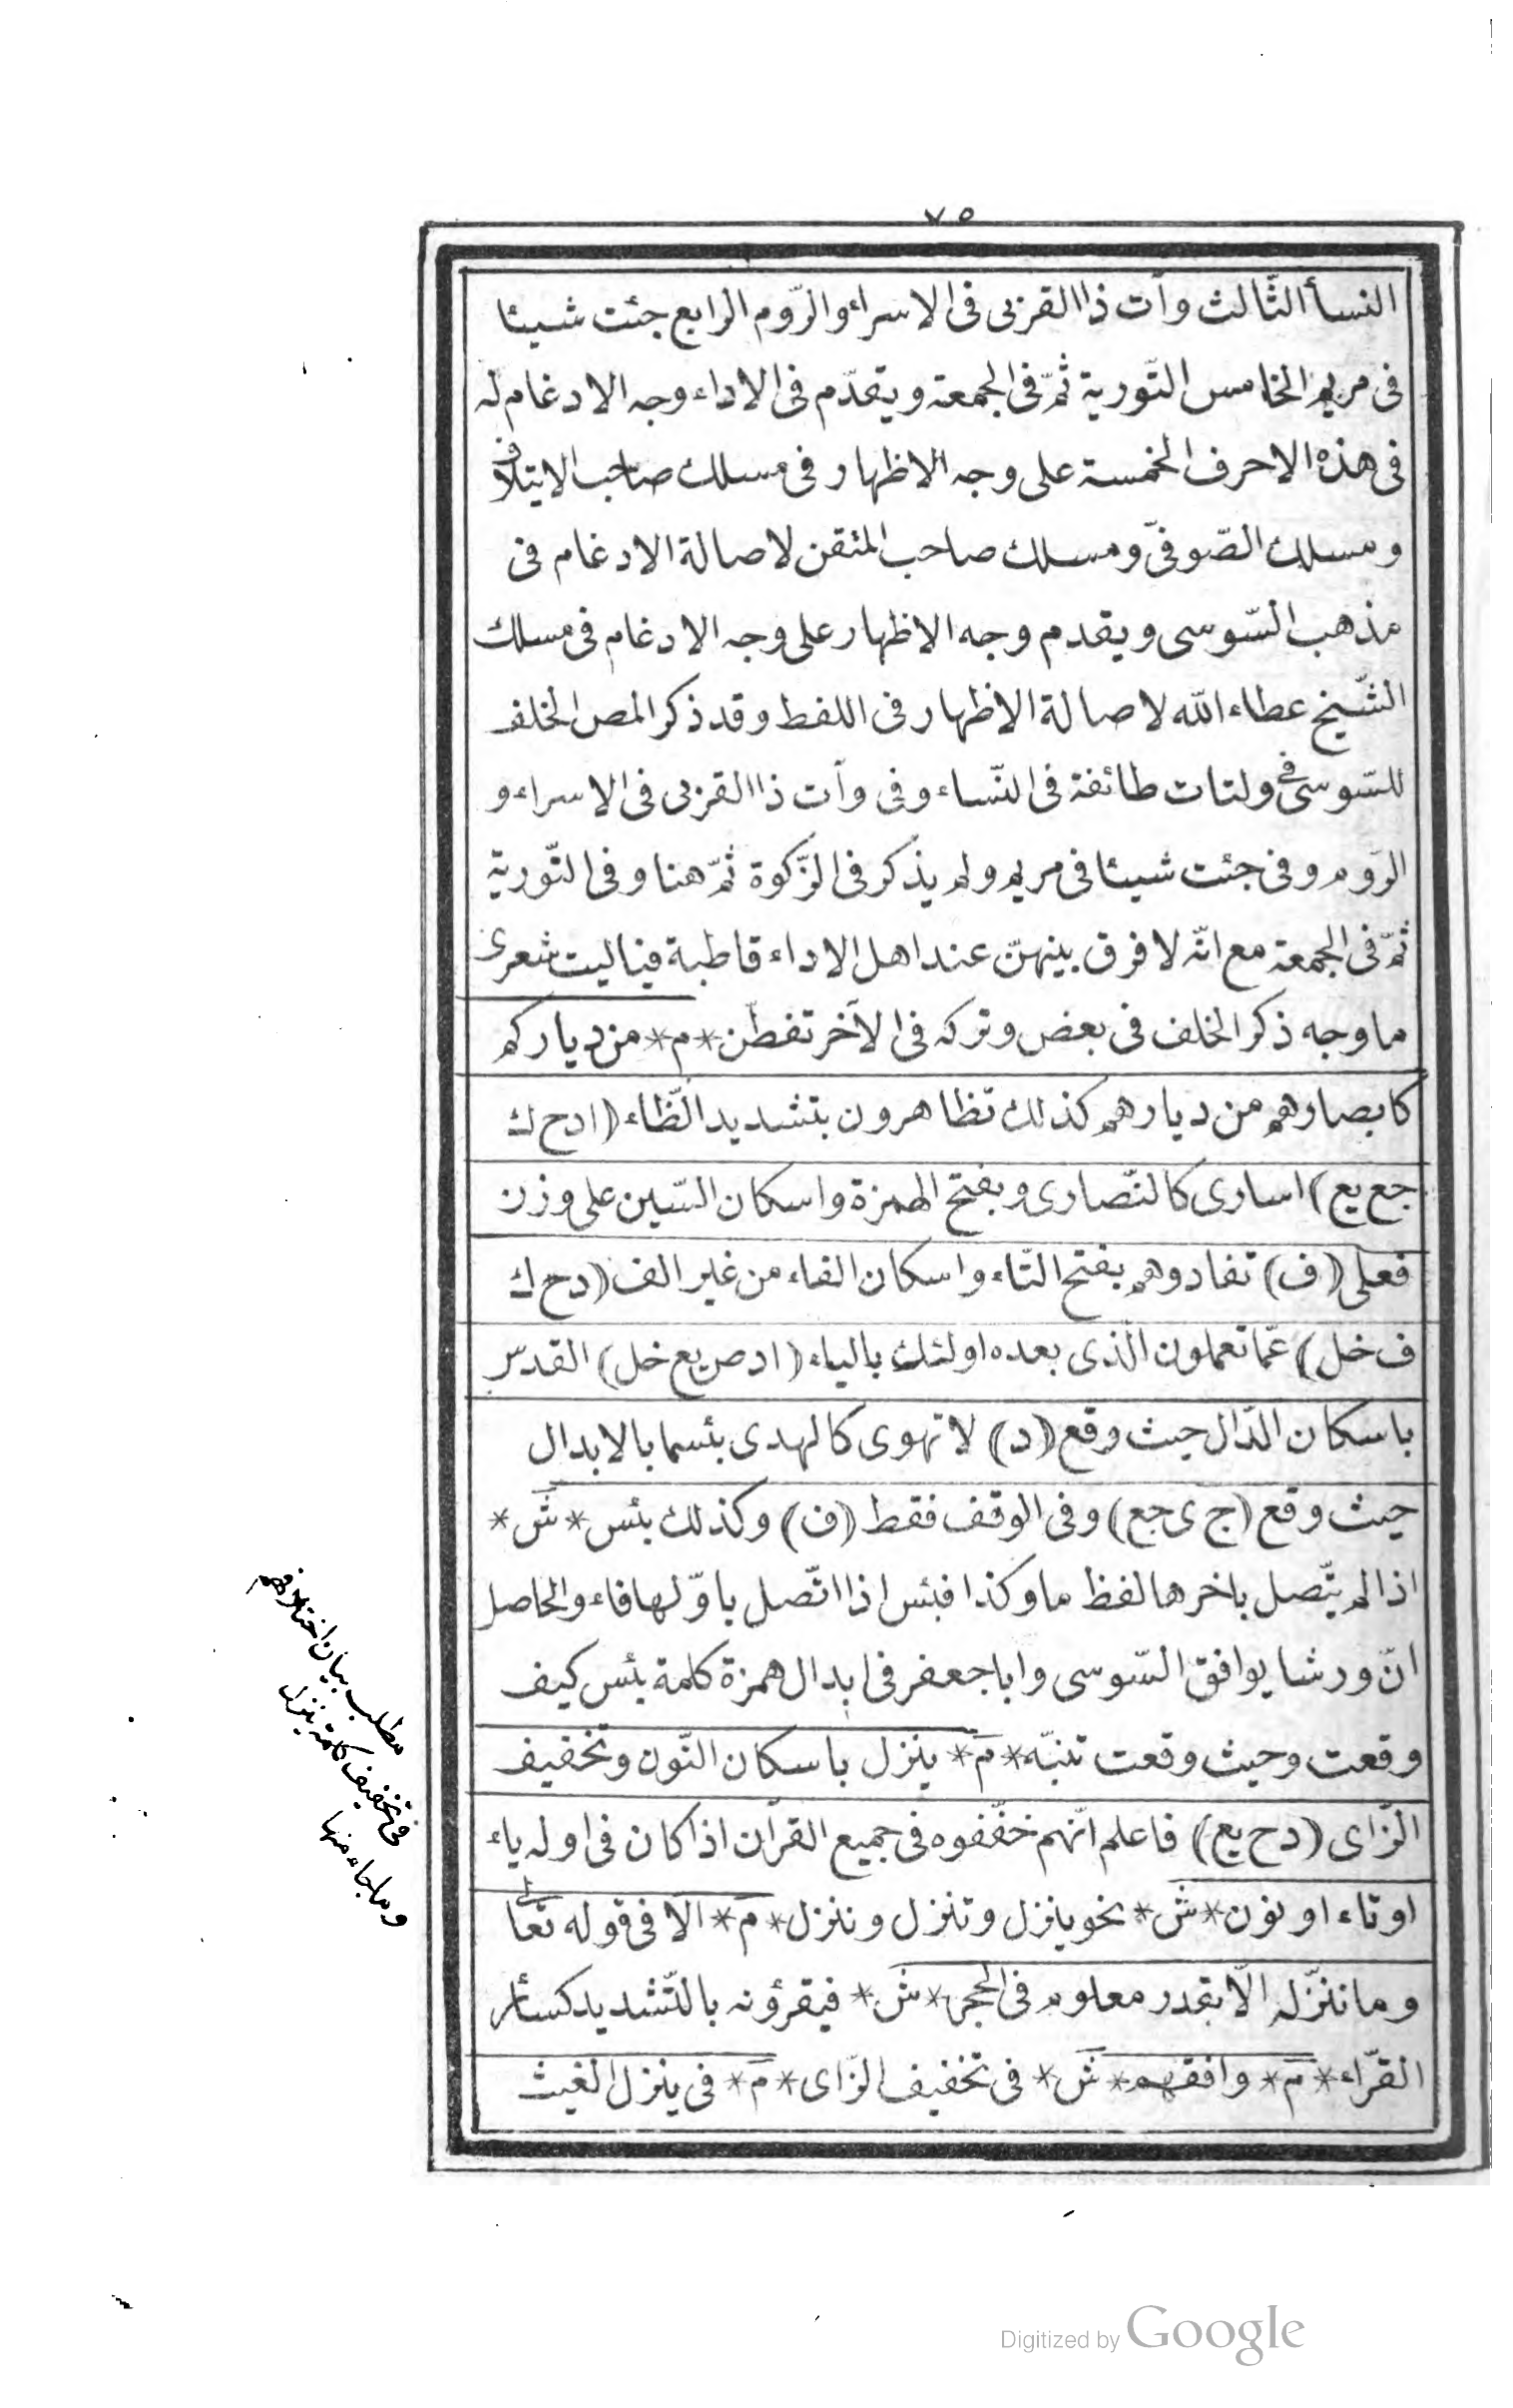 ٧٥
النسأ الثّالث وآت ذا القربى فى الاسراء والرّوم الرابع جئت شيئا
فى مريم الخامس التّورية ثمّ فى الجمعة ويتقدّم فى الاداء وجه الادغام له
فى هذه الاحرف الخمسة على وجه الاظهار فى مسلك صاحب الايتلاف
ومسلك الصّوفىّ ومسلك صاحب المتقن لاصالة الادغام فى
مذهب السّوسى ويقدم وجه الاظهار على وجه الادغام فى مسلك
الشّيخ عطاء الله لاصالة الاظهار فى اللفط وقد ذكر المص الخلف
للسّوسى فى ولتات طائفة فى النّساء وفى وآت ذا القربى فى الاسراء و
الرّوم وفى جئت شيئا فى مريم ولم يذكر فى الزّكوة ثمّ هنا وفى التّورية
ثمّ فى الجمعة مع انّه لا فرق بينهنّ عند اهل الاداء قاطبة فياليت شعرى
ما وجه ذكر الخلف فى بعض وتركه فى الآخر تفطّن * م * من دياركم
كابصارهم من ديارهم كذلك تظاهرون بتشديد الظّاء (ا د ح ك
جع يع) اسارى كالنّصارى وبفتح الهمزة واسكان السّين على وزن
فعلى (ف) تفادوهم بفتح التّاء واسكان الفاء من غير الف (د ح ك
ف خل) عمّا تعملون الّذى بعده اولئك بالياء (ا د ص يع خل) القدس
باسكان الدّال حيث وقع (د) لا تهوى كالهدى بئسما بالابدال
حيث وقع (ج ى جع) وفى الوقف فقط (ف) وكذلك بئس * ش *
اذا لم يتّصل باخرها لفظ ما وكذا فبئس اذا اتّصل باوّلها فاء والحاصل
انّ ورشا يوافق السّوسى وابا جعفر فى ابدال همزة كلمة بئس كيف
وقعت وحيث وقعت تنبّه * م * ينزل باسكان النّون وتخفيف
الزّاى (د ح يع) فاعلم انّهم خفّفوه فى جميع القرآن اذا كان فى اوله ياء
او تاء او نون * ش * نحو ينزل وتنزل وننزل * م * الا فى قوله تعالى
وما ننزّله الّا بقدر معلوم فى الحجر * ش * فيقرؤنه بالتّشديد كسائر
القرّاء * م * وافقهم * ش * فى تخفيف الزّاى * م * فى ينزل الغيث
مطلب بيان اختلافهم
فى تخفيف كلمة ينزل
وما جاء منها
Digitized by Google